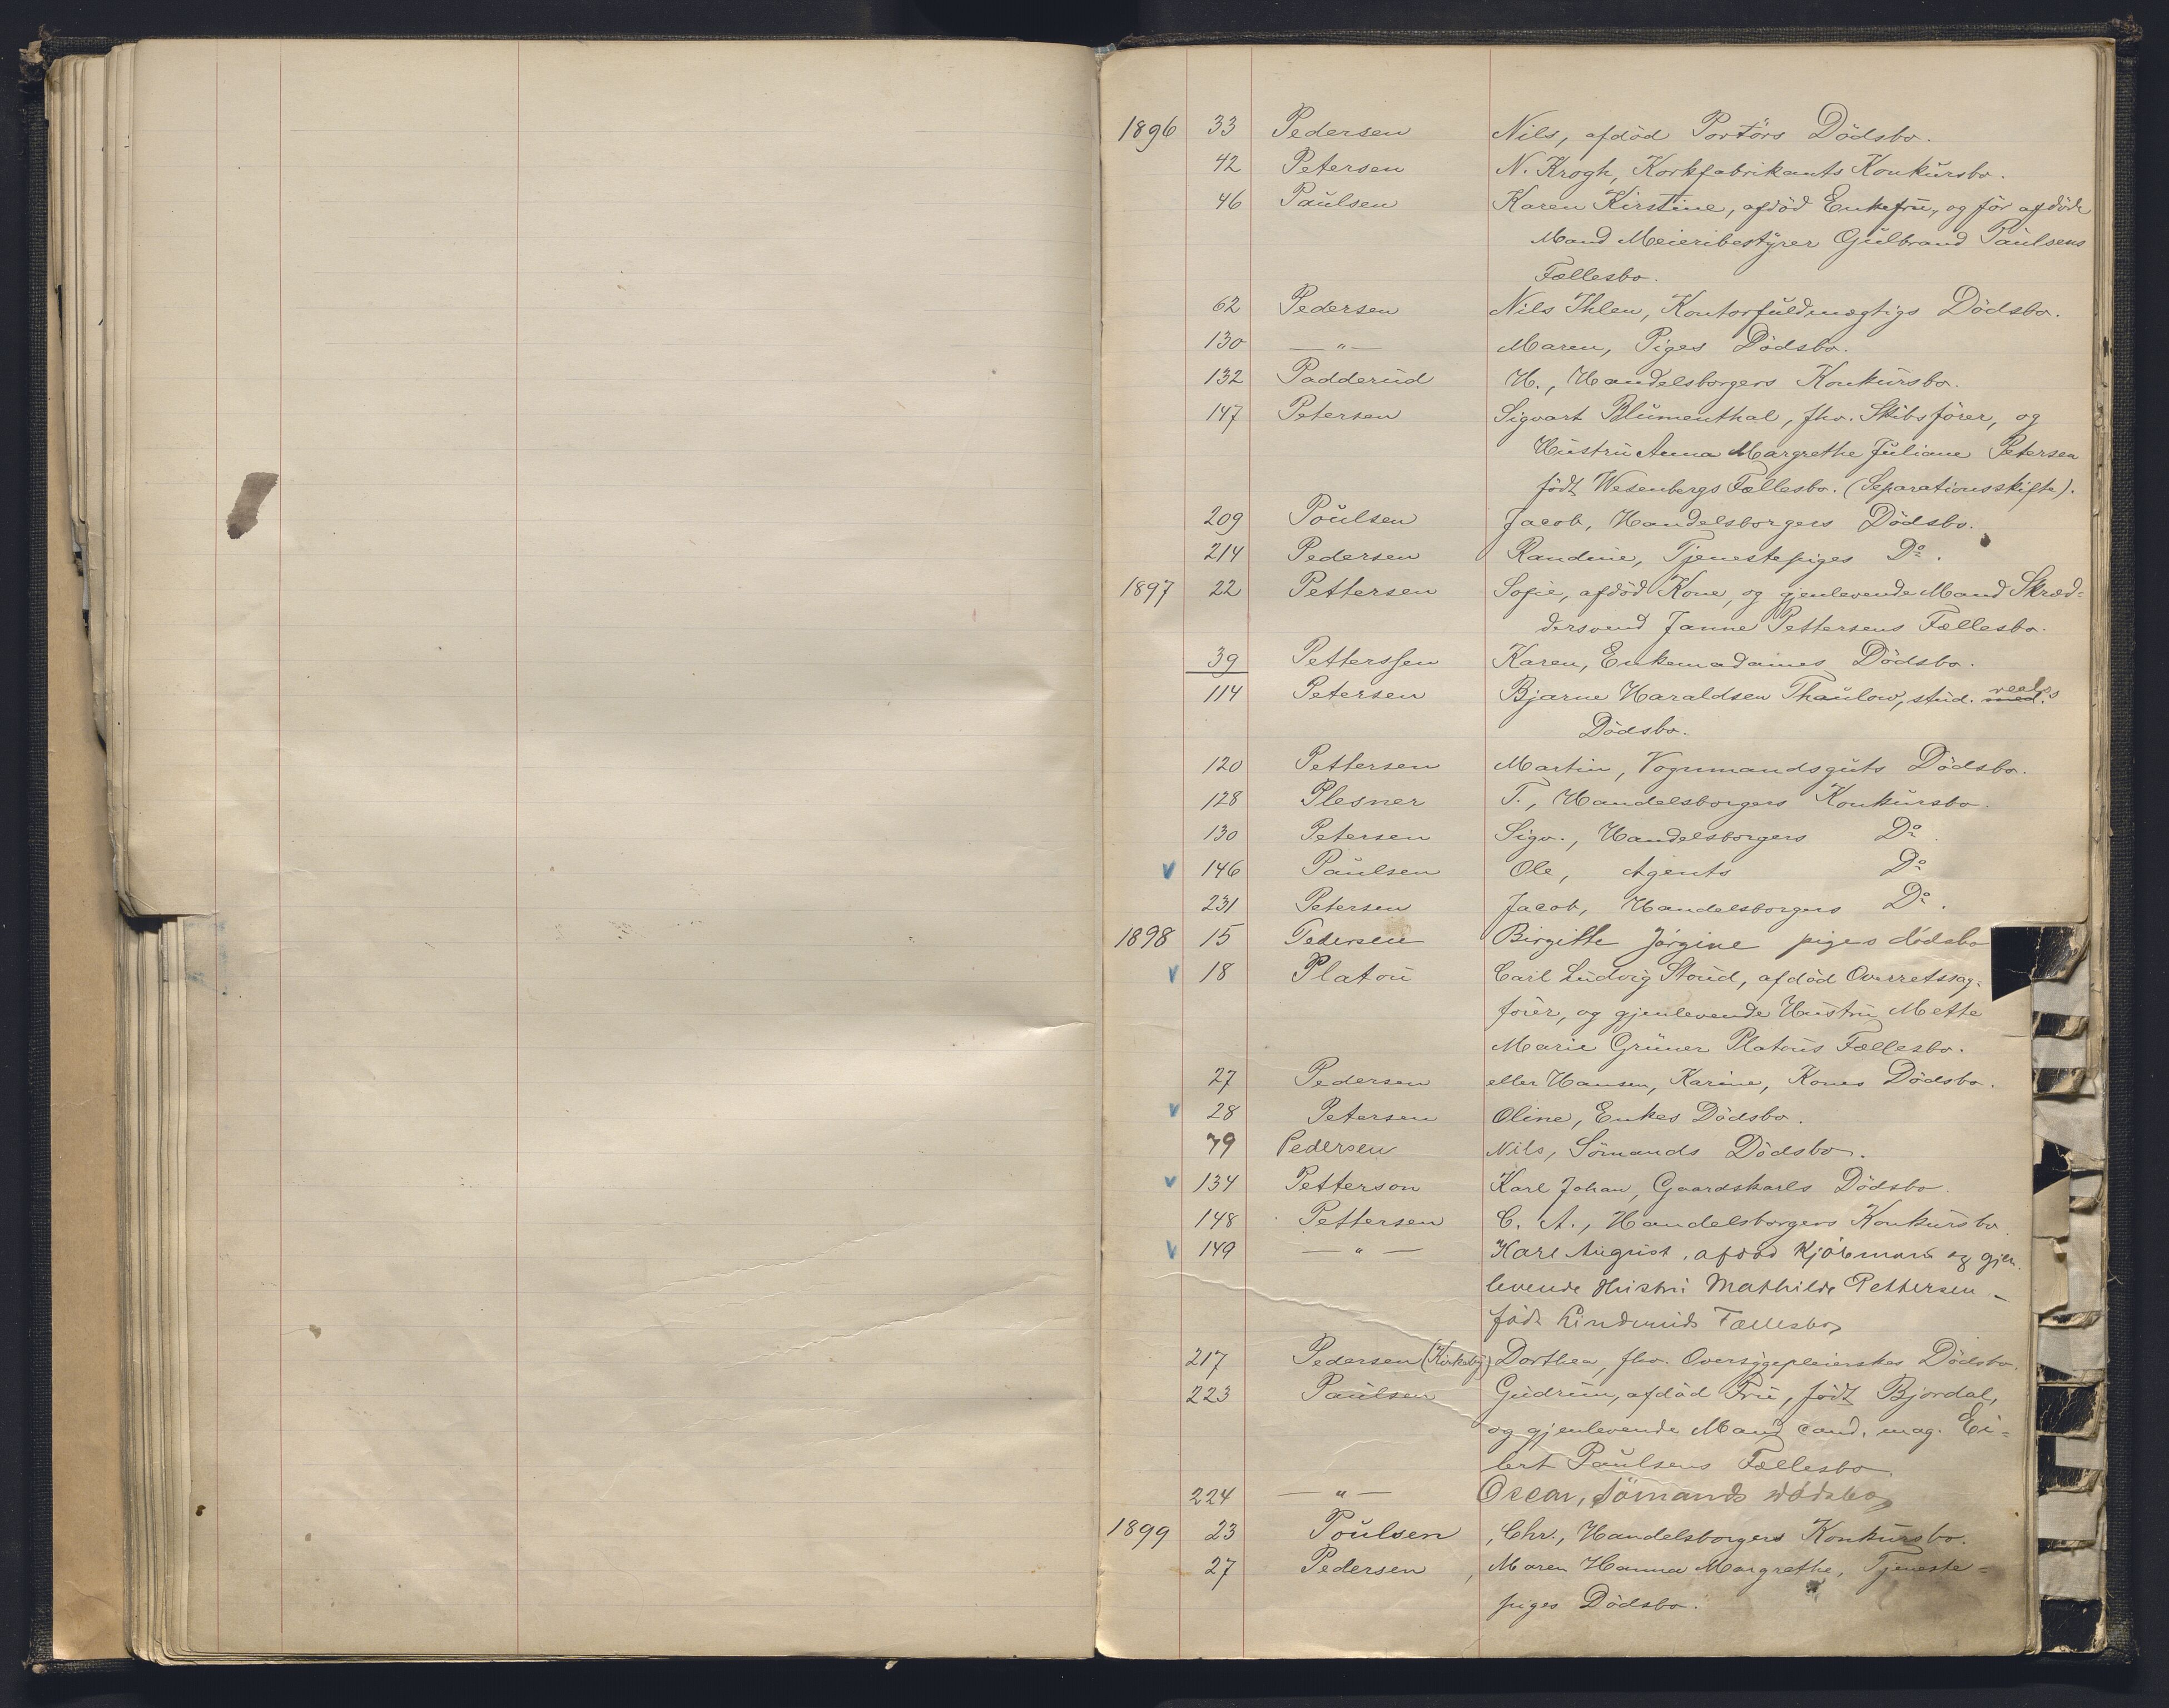 1896 33 Pedersen Nils, afdöd Portörs Dödsbo.
42 Petersen N. Krogh, Korkfabrikants Konkursbo.
46 Paulsen Karen Kirstine, afdöd Enkefru, og før afdöde
Mand Meieribestyrer Gulbrand Paulsens
Fællesbo.
62 Pedersen Nils Ihlen, Kontorfuldmægtigs Dödsbo.
130 —"— Maren, Piges Dödsbo.
132 Padderud H., Handelsborgers Konkursbo.
147 Petersen Sigvart Blumenthal, fhv. Skibsförer, og
Hustru Anna Margrethe Juliane Petersen
födt Wesenbergs Fællesbo. (Separationsskifte).
209 Poulsen Jacob, Handelsborgers Dödsbo.
214 Pedersen Randine, Tjenestepiges Do.
1897 22 Pettersen Sofie, afdöd Kone, og gjenlevende Mand Skræd=
dersvend Janne Pettersens Fællesbo.
39 Petterssen Karen, Enkemadames Dödsbo.
114 Petersen Bjarne Haraldsen Thaulow, stud. med. real.s
Dödsbo.
120 Pettersen Martin, Vognmandsguts Dödsbo.
128 Plesner T., Handelsborgers Konkursbo.
130 Petersen Sigv., Handelsborgers Do.
v 146 Paulsen Ole, Agents Do
231 Petersen Jacob, Handelsborgers Do.
1898 15 Pedersen Birgitte Jörgine piges dödsbo
v 18 Platou Carl Ludvig Stoud, afdöd Overretssag=
förer, og gjenlevende Hustru Mette
Marie Grüner Platous Fællesbo.
27 Pedersen eller Hansen, Karine, Kones Dödsbo.
v 28 Petersen Oline, Enkes Dödsbo.
79 Pedersen Nils, Sömands Dödsbo.
v 134 Petterson Karl Johan, Gaardskarls Dödsbo.
148 Pettersen C. A., Handelsborgers Konkursbo.
v 149 —"— Karl August, afdöd Kjöbmand og gjen=
levende Hustru Mathilde Pettersen
född Linderuds Fællesbo
217 Pedersen (Kirkeby) Dorthea, fhv. Oversygepleierskes Dödsbo.
223 Paulsen Gudrun, afdöd Fru, födt Bjordal,
og gjenlevende Mand cand. mag. Ei=
lert Paulsens Fællesbo.
224 —"— Oscar, Sömands Dödsbo
1899 23 Poulsen, Chr., Handelsborgers Konkursbo.
27 Pedersen, Maren Hanna Margrethe, Tjeneste=
piges Dödsbo.